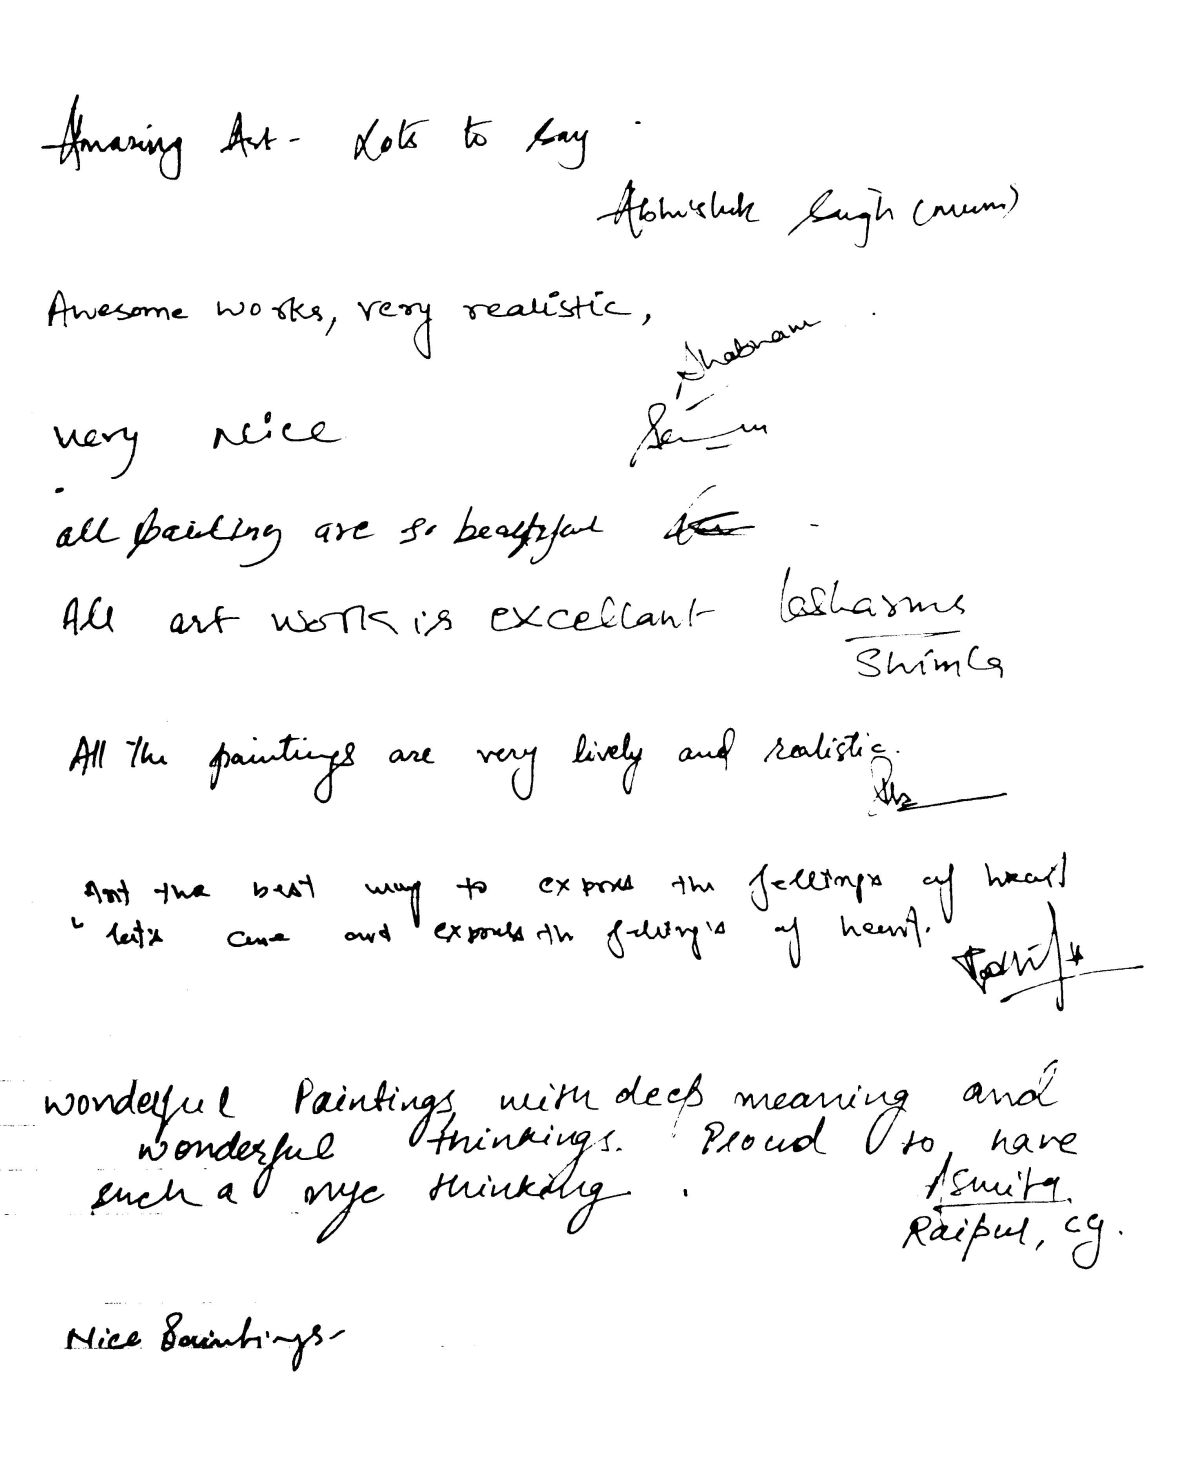 Amazing Art - Lots to say
Abhishek Singh (mum)
Awesome works, very realistic,
Shabnam
very Nice
all painting are so beautiful
All art work is excellant
Shimla
All the paintings are very lively and realistic.
Art the best way to express the fellings of heart
let's come and express the fellings of heart.
wonderful Paintings with deep meaning and
wonderful thinkings. Proud to have
such a nyc thinking.
Asmita
Raipur, CG.
Nice Paintings-